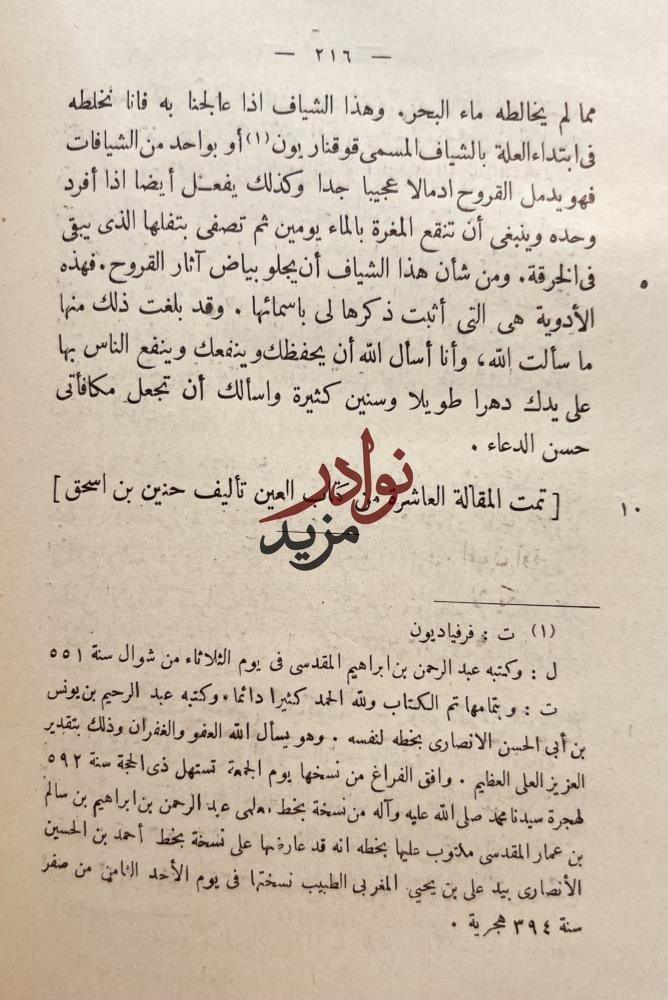 — ٢١٦ —
مما لم يخالطه ماء البحر. وهذا الشياف اذا عالجنا به فانا نخلطه
فى ابتداء العلة بالشياف المسمى قوقناريون(١) أو بواحد من الشيافات
فهو يدمل القروح ادمالا عجيبا جدا وكذلك يفعل أيضا اذا أفرد
وحده وينبغى أن تنقع المغرة بالماء يومين ثم تصفى بتفلها الذى يبقى
فى الخرقة. ومن شأن هذا الشياف أن يجلو بياض آثار القروح. فهذه
٥
الأدوية هى التى أثبت ذكرها لى باسمائها. وقد بلغت ذلك منها
ما سألت الله، وأنا أسأل الله أن يحفظك وينفعك وينفع الناس بها
على يدك دهرا طويلا وسنين كثيرة واسالك أن تجعل مكافأتى
حسن الدعاء.
[تمت المقالة العاشرة من كتاب العين تأليف حنين بن اسحق]
١٠
نوادر
مزيد
(١) ت : فرفياديون
ل : وكتبه عبد الرحمن بن ابراهيم المقدسى فى يوم الثلاثاء من شوال سنة ٥٥١
ت : وبتمامها تم الكتاب ولله الحمد كثيرا دائما. وكتبه عبد الرحيم بن يونس
بن أبى الحسن الانصارى بخطه لنفسه. وهو يسأل الله العفو والغفران وذلك بتقدير
العزيز العلى العظيم. وافق الفراغ من نسخها يوم الجمعة تستهل ذى الحجة سنة ٥٩٢
لهجرة سيدنا محمد صلى الله عليه وآله من نسخة بخط عبد الرحمن بن ابراهيم بن سالم
بن عمار المقدسى مكتوب عليها بخطه انه قد عارضها على نسخة بخط أحمد بن الحسين
الأنصارى بيد على بن يحيى المغربى الطبيب نسختها فى يوم الأحد الثامن من صفر
سنة ٣٩٤ هجرية.